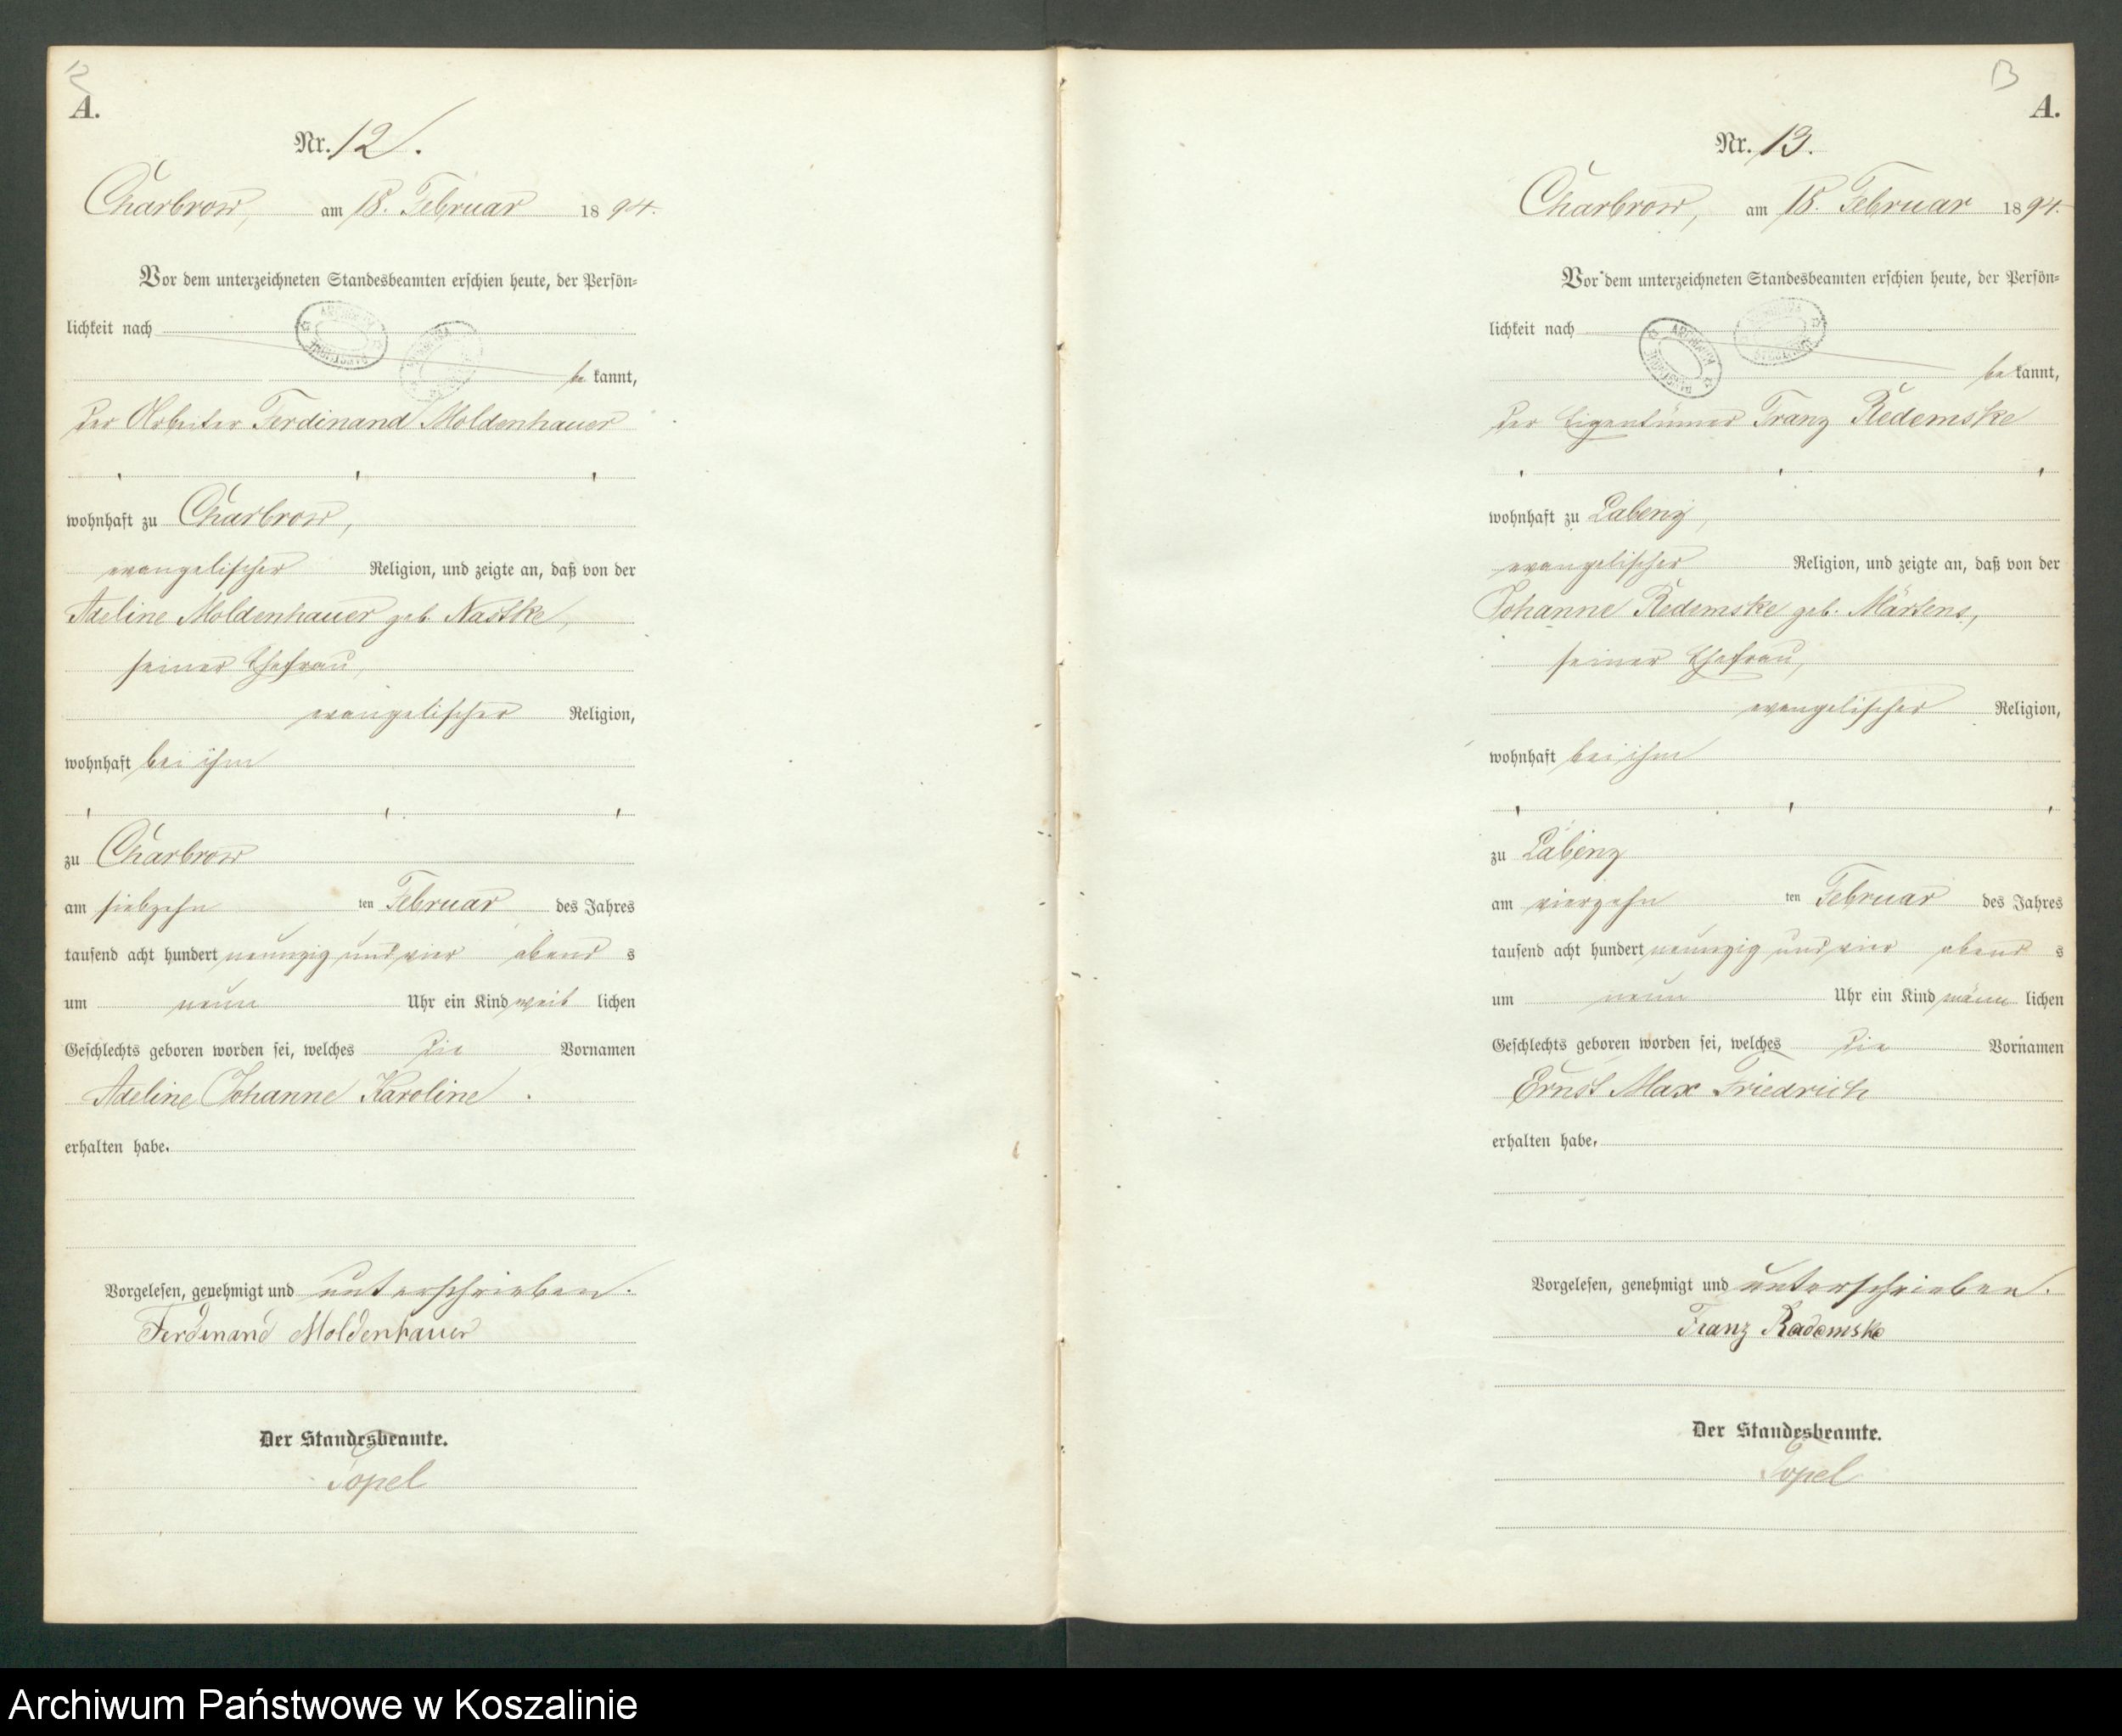 12
A.
Nr. 12.
Charbrow, am 18. Februar 1894.
Vor dem unterzeichneten Standesbeamten erschien heute, der Persön=
lichkeit nach
be kannt,
der Arbeiter Ferdinand Moldenhauer
wohnhaft zu Charbrow,
evangelischer Religion, und zeigte an, daß von der
Adeline Moldenhauer geb. Nastke,
seiner Ehefrau,
evangelischer Religion,
wohnhaft bei ihm
zu Charbrow
am siebzehn ten Februar des Jahres
tausend acht hundert neunzig und vier abend s
um neun Uhr ein Kind weib lichen
Geschlechts geboren worden sei, welches die Vornamen
Adeline Johanne Karoline.
erhalten habe.
Vorgelesen, genehmigt und unterschrieben.
Ferdinand Moldenhauer
Der Standesbeamte.
Topel
13
A.
Nr. 13.
Charbrow, am 18. Februar 1894.
Vor dem unterzeichneten Standesbeamten erschien heute, der Persön=
lichkeit nach
be kannt,
der Eigentümer Franz Redemske
wohnhaft zu Labenz,
evangelischer Religion, und zeigte an, daß von der
Johanne Redemske geb. Märtens,
seiner Ehefrau,
evangelischer Religion,
wohnhaft bei ihm
zu Labenz
am vierzehn ten Februar des Jahres
tausend acht hundert neunzig und vier abend s
um neun Uhr ein Kind männ lichen
Geschlechts geboren worden sei, welches die Vornamen
Ernst Max Friedrich
erhalten habe.
Vorgelesen, genehmigt und unterschrieben.
Franz Rademske
Der Standesbeamte.
Topel
Archiwum Państwowe w Koszalinie